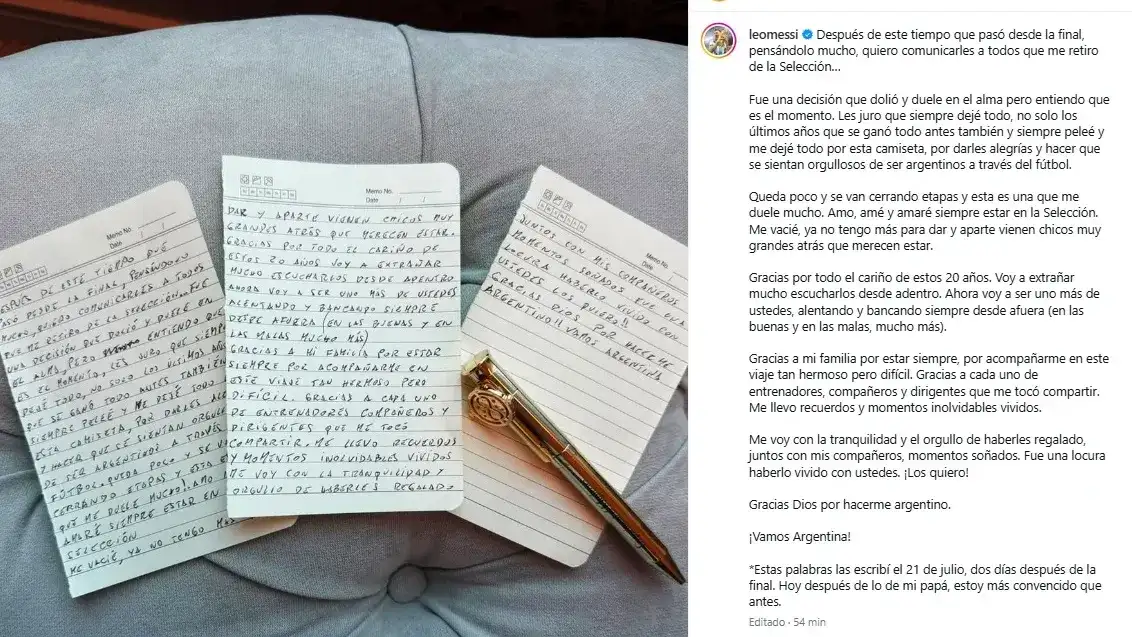 Memo No.
Date / /
DE ESTE TIEMPO QUE
PASÓ DESDE LA FINAL, PENSÁNDOLO
MUCHO, QUIERO COMUNICARLES A TODOS
QUE ME RETIRO DE LA SELECCIÓN... FUE
UNA DECISIÓN QUE DOLIÓ Y DUELE EN
EL ALMA, PERO ENTIENDO QUE
ES EL MOMENTO. LES JURO QUE SIEMPRE
DEJÉ TODO, NO SOLO LOS ÚLTIMOS AÑOS
QUE SE GANÓ TODO ANTES TAMBIÉN
SIEMPRE PELEÉ Y ME DEJÉ TODO
ESTA CAMISETA, POR DARLES
Y HACER QUE SE SIENTAN
DE SER ARGENTINOS A TRAVÉS
FÚTBOL. QUEDA POCO Y SE
CERRANDO ETAPAS Y ESTA
QUE ME DUELE MUCHO! AMO,
AMARÉ SIEMPRE ESTAR EN
SELECCIÓN
ME VACIÉ, YA NO TENGO MÁS
Memo No.
Date / /
DAR Y APARTE VIENEN CHICOS MUY
GRANDES ATRÁS QUE MERECEN ESTAR.
GRACIAS POR TODO EL CARIÑO DE
ESTOS 20 AÑOS VOY A EXTRAÑAR
MUCHO ESCUCHARLOS DESDE ADENTRO
AHORA VOY A SER UNO MÁS DE USTEDES
ALENTANDO Y BANCANDO SIEMPRE
DESDE AFUERA (EN LAS BUENAS Y EN
LAS MALAS MUCHO MÁS)
GRACIAS A MI FAMILIA POR ESTAR
SIEMPRE POR ACOMPAÑARME EN
ESTE VIAJE TAN HERMOSO PERO
DIFÍCIL. GRACIAS A CADA UNO
DE ENTRENADORES COMPAÑEROS Y
DIRIGENTES QUE ME TOCÓ
COMPARTIR. ME LLEVO RECUERDOS
Y MOMENTOS INOLVIDABLES VIVIDOS
ME VOY CON LA TRANQUILIDAD Y
ORGULLO DE HABERLES REGALADO
Memo No.
Date
JUNTOS CON MIS COMPAÑEROS
MOMENTOS SOÑADOS FUE UNA
LOCURA HABERLO VIVIDO CON
USTEDES LOS QUIERO!!
GRACIAS DIOS POR HACERME
ARGENTINO!! VAMOS ARGENTINA
leomessi Después de este tiempo que pasó desde la final,
pensándolo mucho, quiero comunicarles a todos que me retiro
de la Selección...
Fue una decisión que dolió y duele en el alma pero entiendo que
es el momento. Les juro que siempre dejé todo, no solo los
últimos años que se ganó todo antes también y siempre peleé y
me dejé todo por esta camiseta, por darles alegrías y hacer que
se sientan orgullosos de ser argentinos a través del fútbol.
Queda poco y se van cerrando etapas y esta es una que me
duele mucho. Amo, amé y amaré siempre estar en la Selección.
Me vacié, ya no tengo más para dar y aparte vienen chicos muy
grandes atrás que merecen estar.
Gracias por todo el cariño de estos 20 años. Voy a extrañar
mucho escucharlos desde adentro. Ahora voy a ser uno más de
ustedes, alentando y bancando siempre desde afuera (en las
buenas y en las malas, mucho más).
Gracias a mi familia por estar siempre, por acompañarme en este
viaje tan hermoso pero difícil. Gracias a cada uno de
entrenadores, compañeros y dirigentes que me tocó compartir.
Me llevo recuerdos y momentos inolvidables vividos.
Me voy con la tranquilidad y el orgullo de haberles regalado,
juntos con mis compañeros, momentos soñados. Fue una locura
haberlo vivido con ustedes. ¡Los quiero!
Gracias Dios por hacerme argentino.
¡Vamos Argentina!
*Estas palabras las escribí el 21 de julio, dos días después de la
final. Hoy después de lo de mi papá, estoy más convencido que
antes.
Editado · 54 min